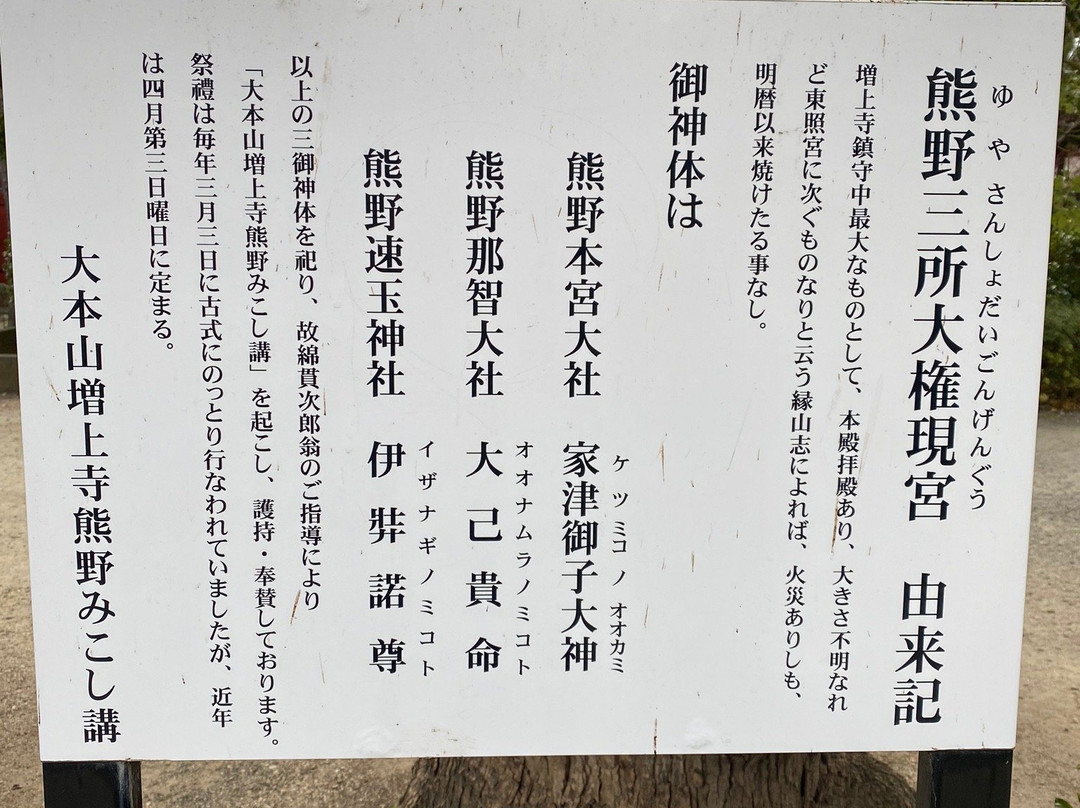 ゆやさんしょだいごんげんぐう
熊野三所大権現宮 由来記
増上寺鎮守中最大なものとして、本殿拝殿あり、大きさ不明なれ
ど東照宮に次ぐものなりと云う縁山志によれば、火災ありしも、
明暦以来焼けたる事なし。
御神体は
ケツミコノオオカミ
熊野本宮大社 家津御子大神
オオナムラノミコト
熊野那智大社 大己貴命
イザナギノミコト
熊野速玉神社 伊弉諾尊
以上の三御神体を祀り、故綿貫次郎翁のご指導により
「大本山増上寺熊野みこし講」を起こし、護持・奉賛しております。
祭禮は毎年三月三日に古式にのっとり行なわれていましたが、近年
は四月第三日曜日に定まる。
大本山増上寺熊野みこし講